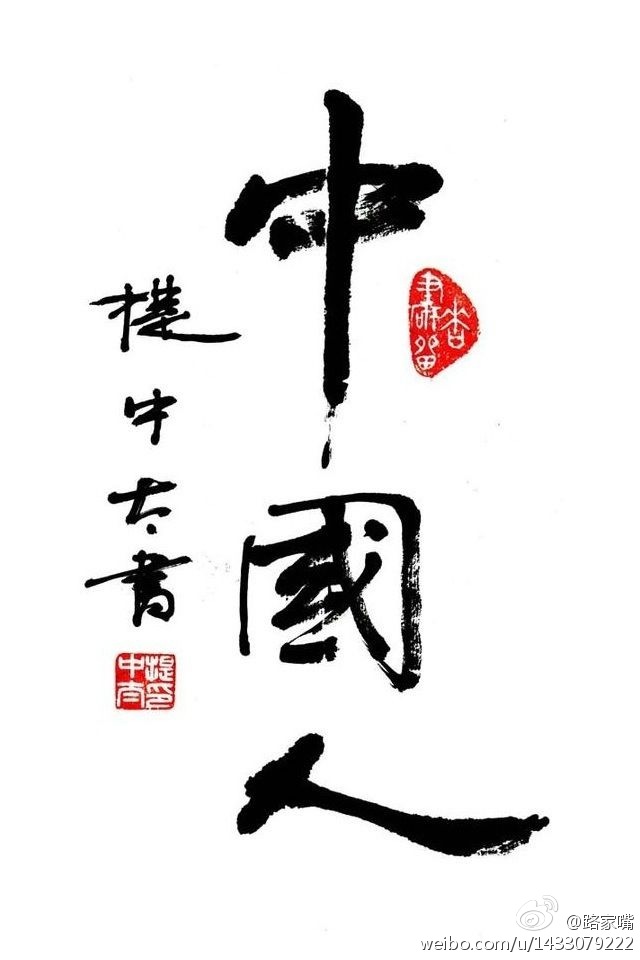 中國人
中太書
@路家嘴
weibo.com/u/1433079222